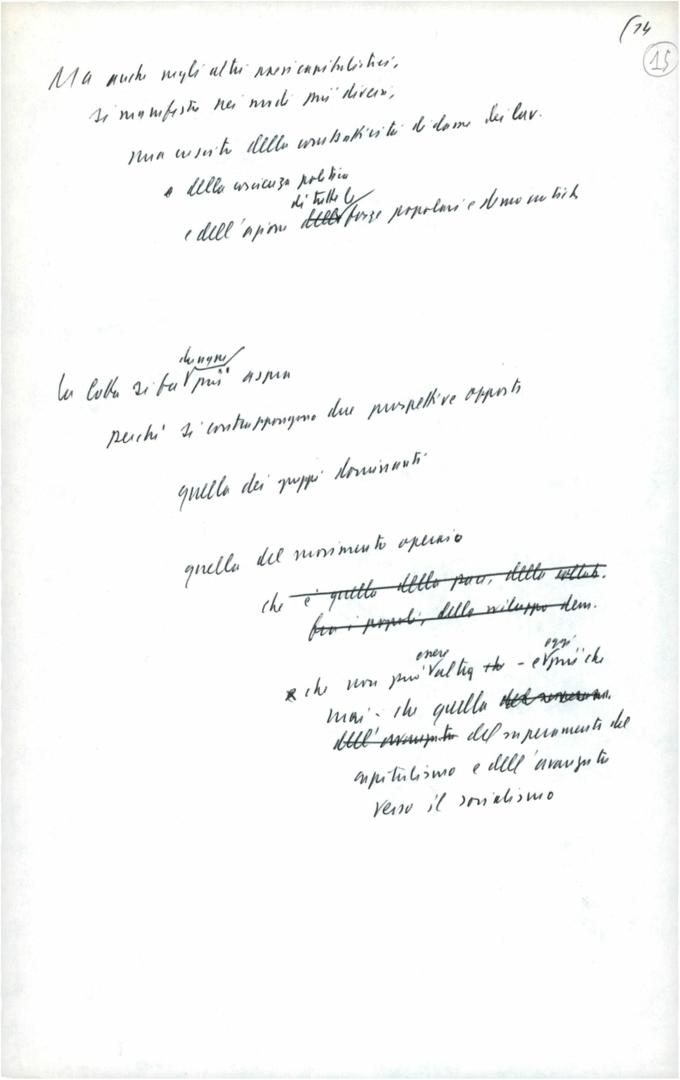 (14
15
Ma anche negli altri paesi capitalistici,
si manifesta nei modi più diversi,
una crescita della combattività di classe dei lav.
e della coscienza politica
di tutte le
e dell'azione delle forze popolari e democratiche
che ogni
La lotta si fa più aspra
perché si contrappongono due prospettive opposte
quella dei gruppi dominanti
quella del movimento operaio
che è quella della pace, della collab.
fra i popoli, dello sviluppo dem.
essere oggi
che non può altra che - e più che
mai - che quella del
dell'avanzata del superamento del
capitalismo e dell'avanzata
verso il socialismo